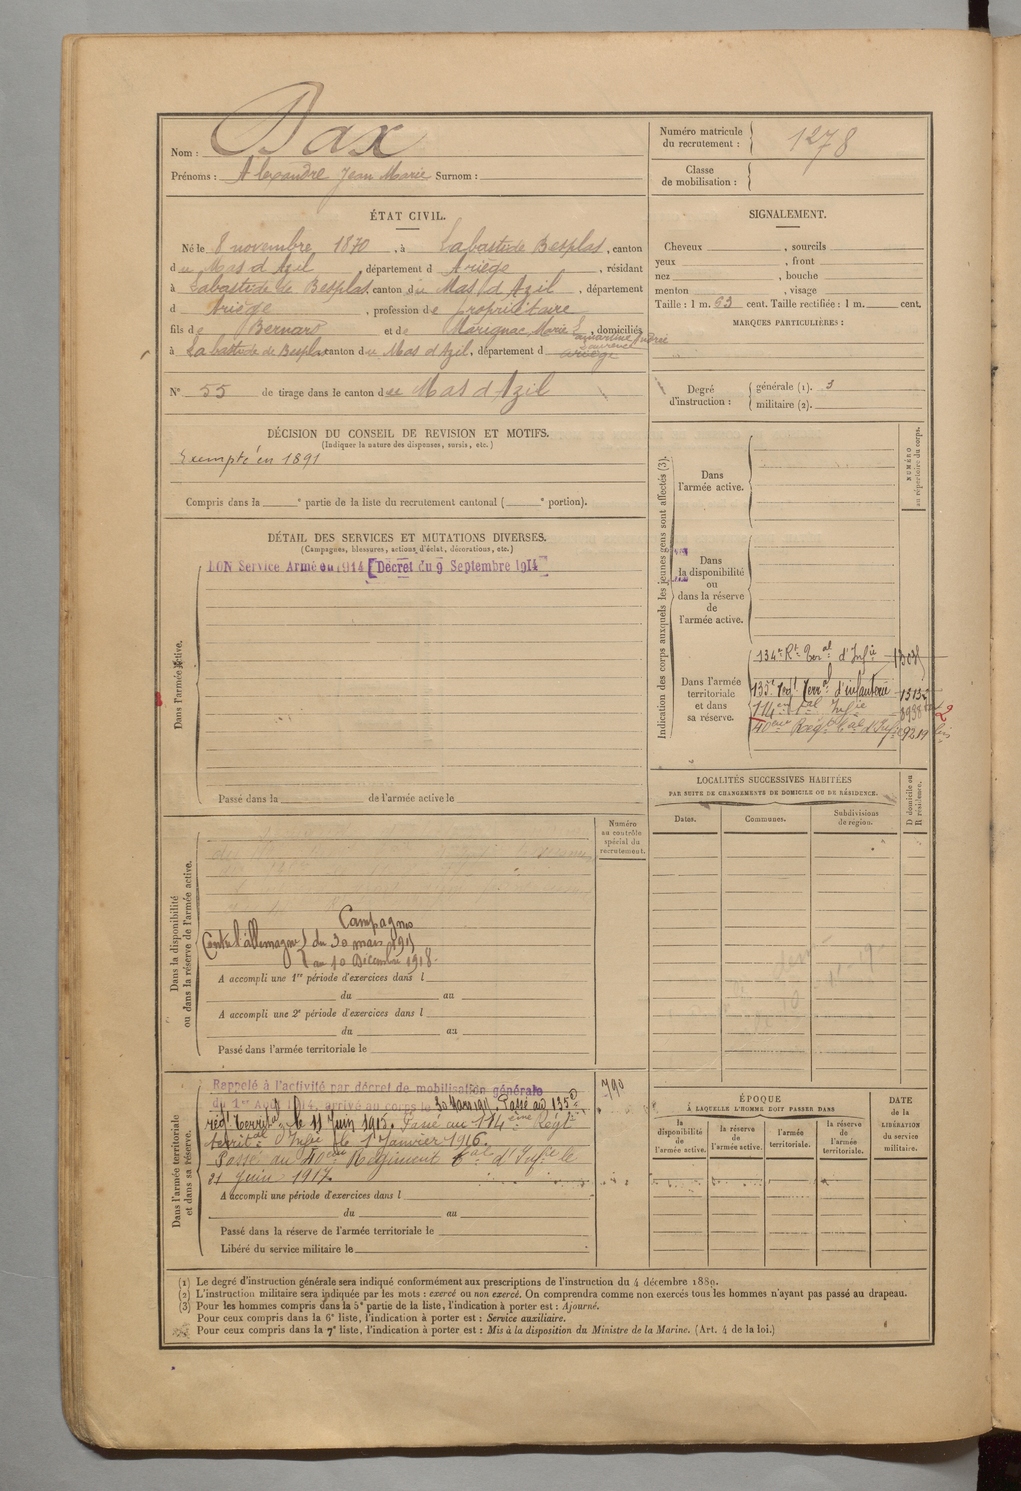 Nom : Dax
Prénoms : Alexandre Jean Marie Surnom :
Numéro matricule du recrutement : 1278
Classe de mobilisation :
ÉTAT CIVIL.
Né le 8 novembre 1870, à Labastide Besplas, canton
du Mas d'Azil, département d Ariège, résidant
à Labastide de Besplas, canton du Mas d'Azil, département
d Ariège, profession de propriétaire
fils de Bernard et de Marignac, Marie, domiciliés
à Labastide de Besplas canton du Mas d'Azil, département d Ariège
N° 55 de tirage dans le canton de Mas d'Azil
SIGNALEMENT.
Cheveux , sourcils
yeux , front
nez , bouche
menton , visage
Taille : 1 m. 63 cent. Taille rectifiée : 1 m. cent.
MARQUES PARTICULIÈRES :
Degré d'instruction : générale (1). 3
militaire (2).
DÉCISION DU CONSEIL DE REVISION ET MOTIFS.
(Indiquer la nature des dispenses, sursis, etc.)
Exempté en 1891
Compris dans la e partie de la liste du recrutement cantonal ( e portion).
DÉTAIL DES SERVICES ET MUTATIONS DIVERSES.
(Campagnes, blessures, actions d'éclat, décorations, etc.)
Dans l'armée active.
BON Service Armé en 1914 [Décret du 9 Septembre 1914]
Passé dans la de l'armée active le
Indication des corps auxquels les jeunes gens sont affectés (3).
NUMÉRO au répertoire du corps.
Dans l'armée active.
Dans la disponibilité ou dans la réserve de l'armée active.
Dans l'armée territoriale et dans sa réserve.
134e Rt Teral d'Infie
135e Regt Terral d'infanterie
114e Tal Infie
40eme Régt Tal d'Infie 9219
LOCALITÉS SUCCESSIVES HABITÉES
PAR SUITE DE CHANGEMENTS DE DOMICILE OU DE RÉSIDENCE.
Dates. Communes. Subdivisions de région. D domicile ou R résidence.
Dans la disponibilité ou dans la réserve de l'armée active.
Numéro au contrôle spécial du recrutement.
Campagnes
Contre l'allemagne du 30 mars 1915
au 10 Décembre 1918.
A accompli une 1re période d'exercices dans l
du au
A accompli une 2e période d'exercices dans l
du au
Passé dans l'armée territoriale le
Dans l'armée territoriale et dans sa réserve.
790
Rappelé à l'activité par décret de mobilisation générale
du 1er Août 1914, arrivé au corps le 30 Mars 1915. Passé au 135e
régt Territal le 11 Juin 1915. Passé au 114ème Régt
territal d'Infie le 1er Janvier 1916.
Passé au 40eme Régiment Tal d'Infie le
21 Juin 1917.
A accompli une période d'exercices dans l
du au
Passé dans la réserve de l'armée territoriale le
Libéré du service militaire le
ÉPOQUE
À LAQUELLE L'HOMME DOIT PASSER DANS
la disponibilité de l'armée active.
la réserve de l'armée active.
l'armée territoriale.
la réserve de l'armée territoriale.
DATE de la LIBÉRATION du service militaire.
(1) Le degré d'instruction générale sera indiqué conformément aux prescriptions de l'instruction du 4 décembre 1889.
(2) L'instruction militaire sera indiquée par les mots : exercé ou non exercé. On comprendra comme non exercés tous les hommes n'ayant pas passé au drapeau.
(3) Pour les hommes compris dans la 5e partie de la liste, l'indication à porter est : Ajourné.
Pour ceux compris dans la 6e liste, l'indication à porter est : Service auxiliaire.
Pour ceux compris dans la 7e liste, l'indication à porter est : Mis à la disposition du Ministre de la Marine. (Art. 4 de la loi.)